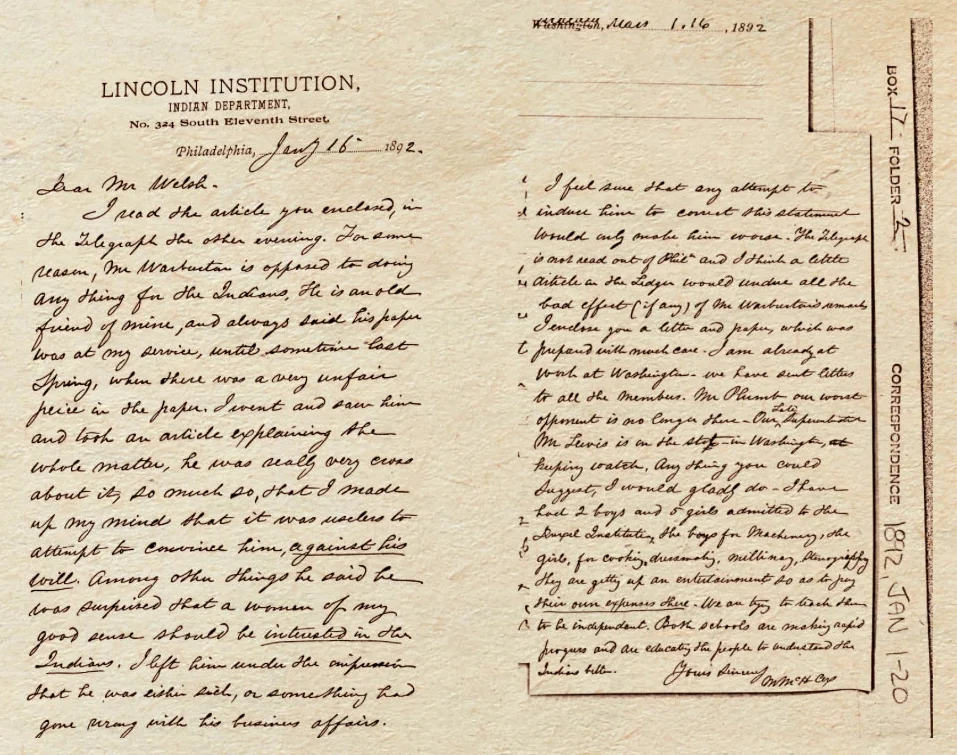 LINCOLN INSTITUTION,
INDIAN DEPARTMENT,
No. 324 South Eleventh Street,
Philadelphia, Jany 16 1892.
Dear Mr Welsh.
I read the article you enclosed, in
the Telegraph the other evening. For some
reason, Mr Warburton is opposed to doing
any thing for the Indians, He is an old
friend of mine, and always said his paper
was at my service, until sometime last
Spring, when there was a very unfair
peice in the paper. I went and saw him
and took an article explaining the
whole matter, he was really very cross
about it, so much so, that I made
up my mind that it was useless to
attempt to convince him, against his
will. Among other things he said he
was surprised that a women of my
good sense should be interested in the
Indians. I left him under the impression
that he was either sick, or something had
gone wrong with his business affairs.
Washington, 1.16, 1892
I feel sure that any attempt to
induce him to correct this statement
would only make him worse. The Telegraph
is not read out of Phila and I think a little
article in the Ledger would undue all the
bad effect (if any) of Mr Warburton's remarks
I enclose you a letter and paper, which was
prepared with much care. I am already at
work at Washington - we have sent letters
to all the members. Mr Plumb our worst
opponent is no longer there - Our Late Superintendent
Mr Lewis is on the spot - in Washington, at
keeping watch, Any thing you could
suggest, I would gladly do - I have
had 2 boys and 5 girls admitted to the
Drexel Institute, the boys for Machinery, the
girls, for cooking, dressmaking, millinery, stenography
they are getting up an entertainment so as to pay
their own expenses there - We are trying to teach them
to be independent. Both schools are making rapid
progress and are educating the people to understand the
Indians better. Yours Sincerely
M McH Cox
BOX 17 FOLDER 2
CORRESPONDENCE 1892, JAN 1-20